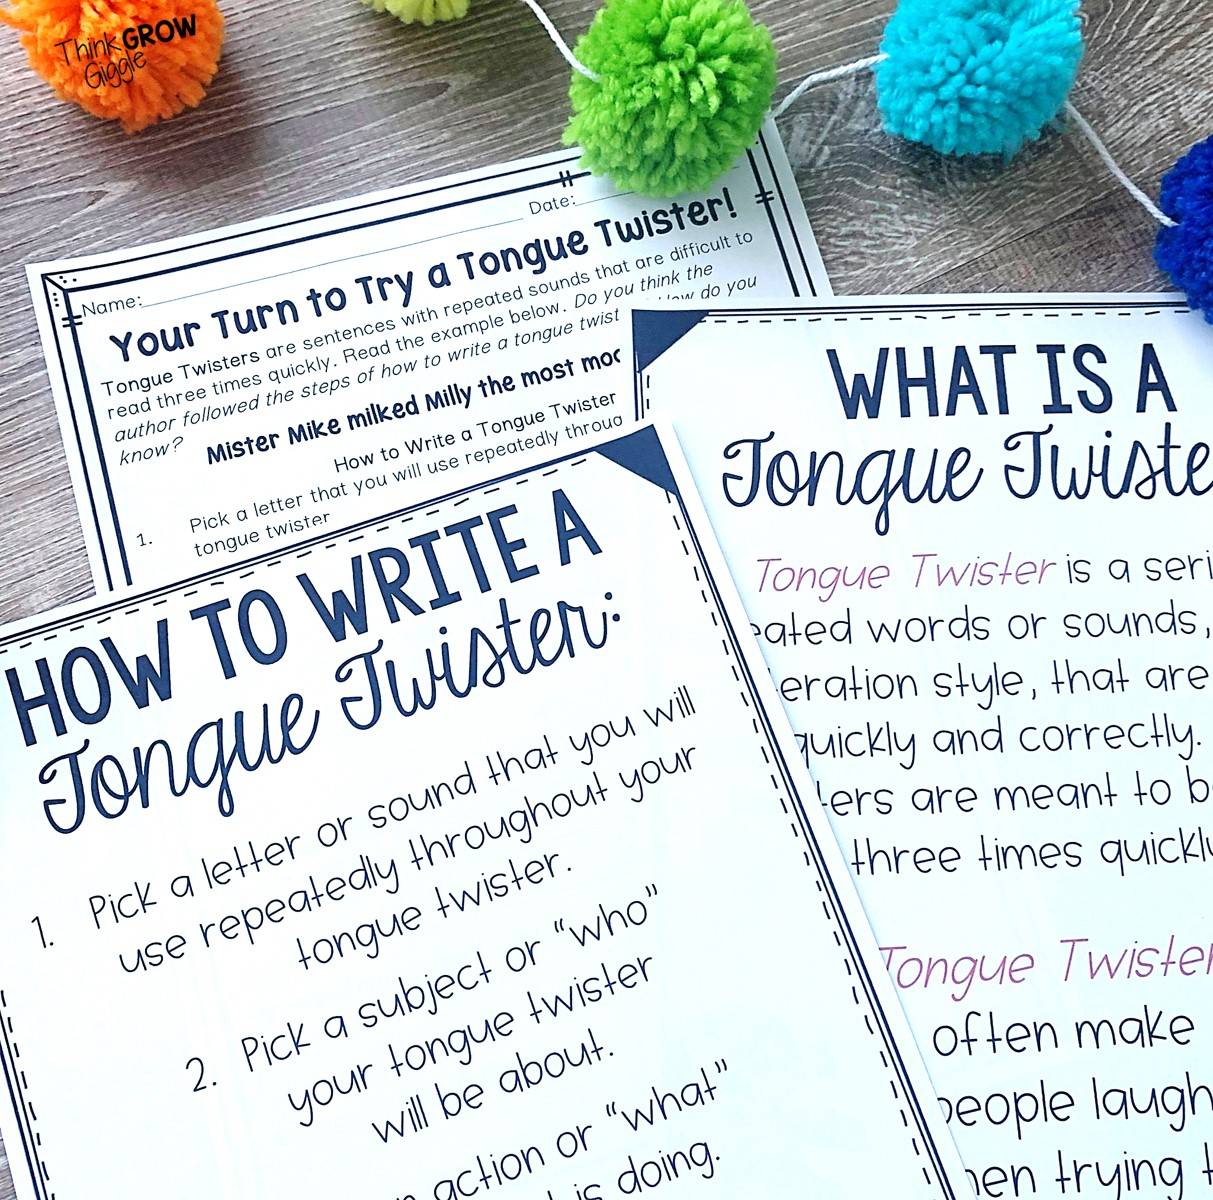 Think GROW
Giggle
Name:
Date:
Your Turn to Try a Tongue Twister!
Tongue Twisters are sentences with repeated sounds that are difficult to
read three times quickly. Read the example below. Do you think the
author followed the steps of how to write a tongue twist
do you
know?
Mister Mike milked Milly the most
How to Write a Tongue Twister
1. Pick a letter that you will use repeatedly
tongue twister
HOW TO WRITE A
Tongue Twister:
1. Pick a letter or sound that you will
use repeatedly throughout your
tongue twister.
2. Pick a subject or “who”
your tongue twister
will be about.
action or “what”
is doing.
WHAT IS A
Tongue Twiste
Tongue Twister is a seri
ated words or sounds,
eration style, that are
quickly and correctly.
ters are meant to b
three times quickl
Tongue Twister
often make
people laugh
hen trying